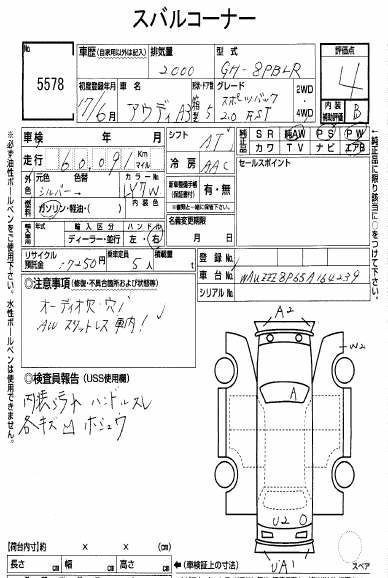 スバルコーナー
No.
5578
車歴(自家用以外は記入) 排気量 型式
2000 GH-8PBLR
評価点
4
内装補助評価 B
初度登録年月 車名 形状・ドア数 グレード
17/6月 アウディA3 5 スポーツバック 2.0 FST 2WD 4WD
車検 年 月
シフト AT
純正品 SR 純AW PS PW
カワ TV ナビ エアB
走行 60,091 Km マイル
冷房 AAC
セールスポイント
外色 元色 色替 カラーNo.
シルバー LY7W
燃料 ガソリン・軽油・( ) 内装色
新車整備手帳(保証書付) 有・無
※書類と一緒に提出
輸入車用 輸入区分 ハンドル
ディーラー・並行 左・右
名義変更期限
月 日
リサイクル預託金 乗車定員 積載量
5人 t
登録No.
車台No. WAUZZZ8P65A164239
シリアルNo.
◎注意事項(修復・不具合箇所および状態等)
オーディオ穴・穴
AW スリットレス 車内!
◎検査員報告(USS使用欄)
内装ヨゴレ ハンドルスレ
各キズ凹 ホシュウ
※必ず油性ボールペンをご使用下さい。水性ボールペンは使用できません。
←純正品に限り該当に○をつけて下さい。
A2
W2
A
U2 O
UA1
スペア
【荷台内寸】 x x (cm)
長さ cm 幅 cm 高さ cm ←(車検証上の寸法)